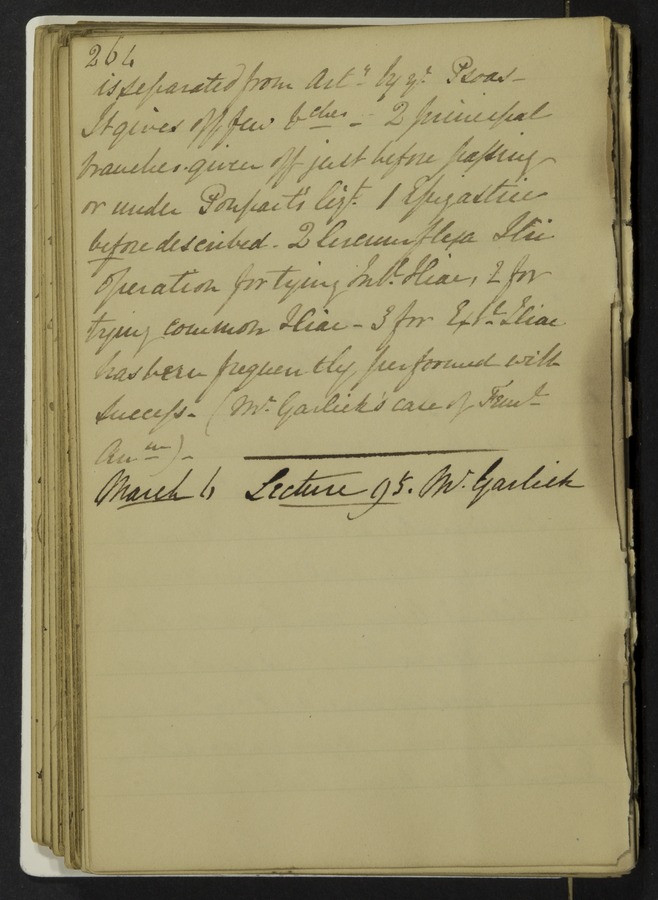 264
is separated from Arty by ye Psoas -
It gives off few bches - 2 principal
branches given off just before passing
or under Poupart's ligt. 1 Epigastric
before described - 2 Circumflexa Ilii
operation for tying Intl Iliac, 2 for
tying common Iliac - 3 for Extl Iliac
has been frequently performed with
success - (Mr Garlick's case of
March 6 Lecture 95. Mr. Garlick